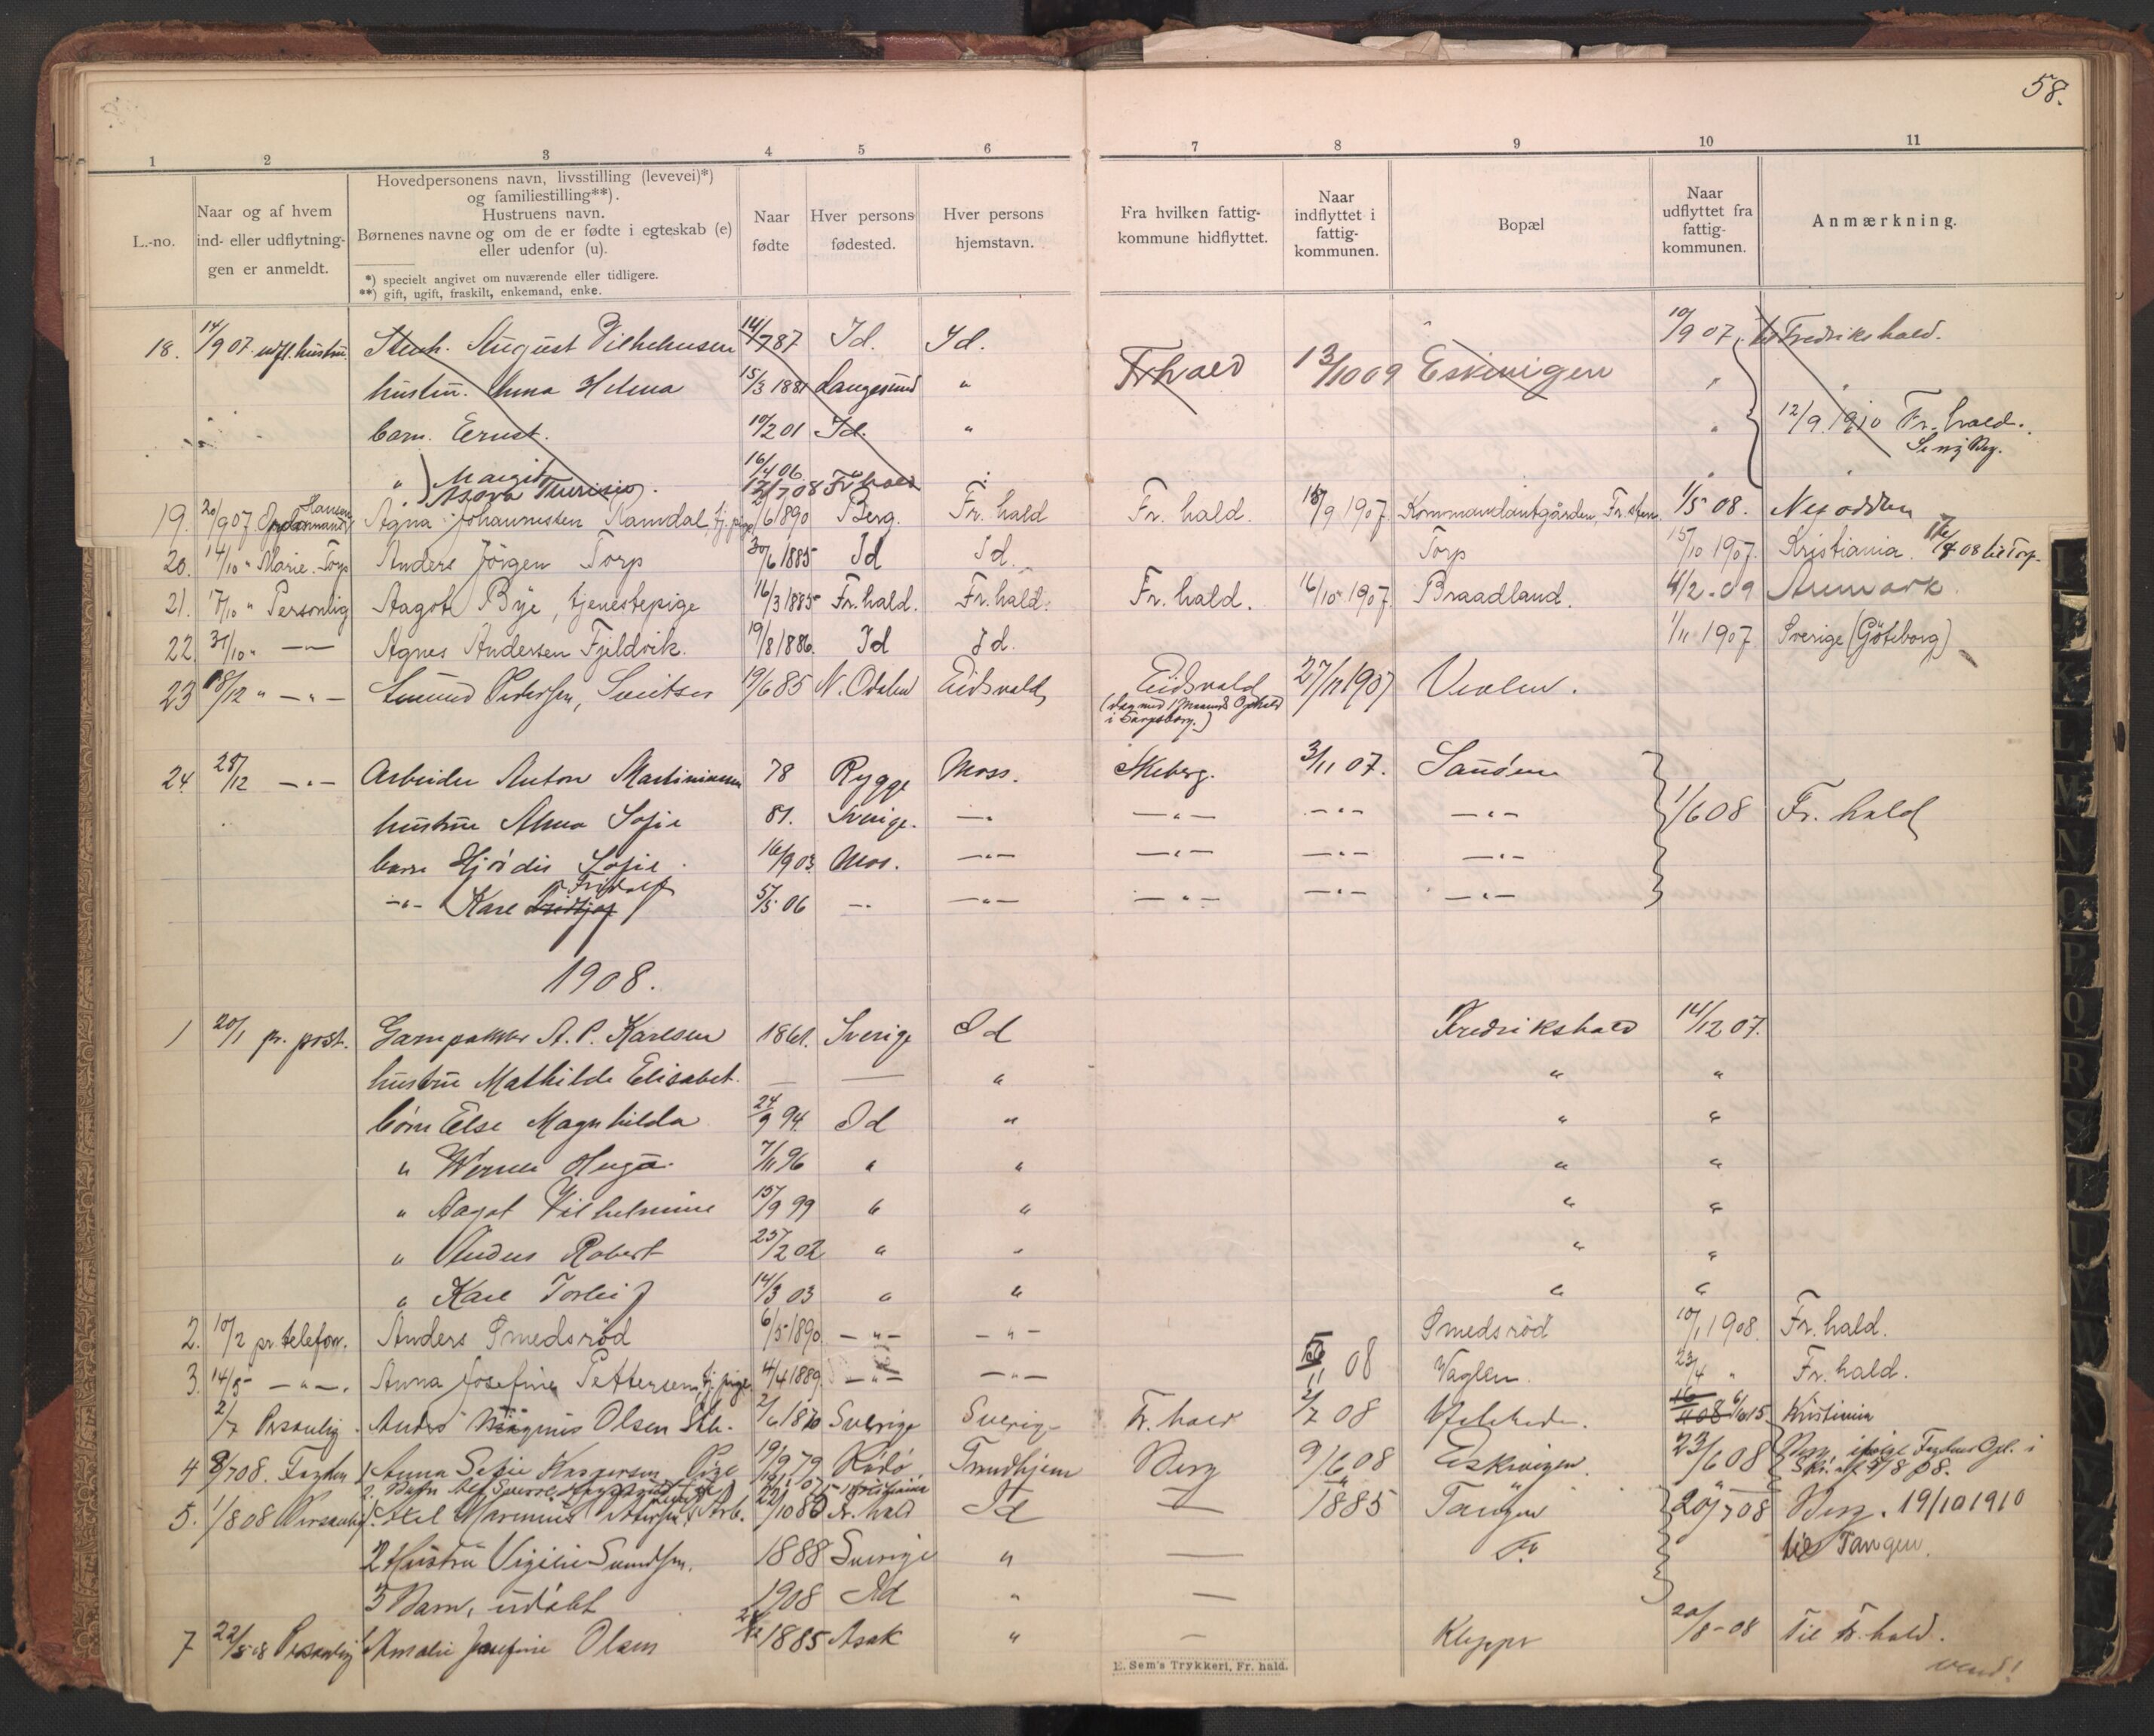 58.
1 2 3 4 5 6 7 8 9 10 11
L.-no.
Naar og af hvem
ind- eller udflytnin-
gen er anmeldt.
Hovedpersonens navn, livsstilling (levevei)*)
og familiestilling**).
Hustruens navn.
Børnenes navne og om de er fødte i egteskab (e)
eller udenfor (u).
*) specielt angivet om nuværende eller tidligere.
**) gift, ugift, fraskilt, enkemand, enke.
Naar
fødte
Hver persons
fødested.
Hver persons
hjemstavn.
Fra hvilken fattig-
kommune hidflyttet.
Naar
indflyttet i
fattig-
kommunen.
Bopæl
Naar
udflyttet fra
fattig-
kommunen.
Anmærkning.
18. 14/9 07 August Vilhelmsen 14/7 87 Id. Id. 10/9 07. Fredrikshald.
hustru. Anna Helena 15/3 1881 Langesund " Fr hald 13/10 09 Eskevigen "
barn. Ernst. 10/2 01 Id. " " 12/9 1910 Fr. hald.
" Margit 16/4 06
12/7 08 Fr hald
19. 20/9 07 Hansen Agna Johannessen Ramdal, tj. pige 2/6 1890 Berg. Fr. hald Fr. hald. 18/9 1907 Kommandantgården, Fr. sten 1/5 08. Nesodden
20. 14/10 " Marie Torp Anders Jörgen Torp 30/6 1885 Id Id. Torp 15/10 1907. Kristiania. 08 til Torp.
21. 17/10 " Personlig Aagot Bye, tjenestepige 16/3 1885 Fr. hald. Fr. hald. Fr. hald. 16/10 1907 Braadland. 4/2 - 09 Aremark.
22. 31/10 " — " — Agnes Andersen Fjeldvik. 19/8 1886. Id Id. 1/11 1907 Sverige (Göteborg)
23 18/12 " — " — Pedersen, 19/6 85 N. Odalen Eidsvold Eidsvold 27/11 1907 Veden.
i Sarpsborg.)
24. 28/12 — " — Arbeider Anton Martiniusen 78 Rygge Moss. Skeberg. 3/11 07. Sanöen
hustru Alma Sofie 81. Sverige. — " — — " — — " — — " — 1/6 08 Fr. hald
barn Hjördis Sofie. 16/9 03. Mos. — " — — " — — " — — " —
— " — Kare Fridtjof 5/5 06 — " — — " — — " — — " — — " —
1908.
1 20/1 pr. post. A. P. Karlsen 1861. Sverige Id Fredrikshald 14/12 07.
hustru Mathilde Elisabet. — — " " "
börn Else Magnhilda 24/9 94. Id " " "
" Werner Hugo. 7/11 96 " " " "
" Aagot Vilhelmine 15/9 99 " " " "
" Anders Robert 25/2 02 " " " "
" Kare Torleif 14/3 03 " " " "
2. 10/2 pr. telefon. Anders Smedsröd 6/5 1890. — " — — " — Smedsröd 10/1 1908. Fr. hald.
3. 14/5 — " — . Anna Josefine Pettersen, tj. pige 4/4 1889. — " — — " — 08 Vaglen. 23/4 " Fr. hald.
2/7 Personlig. Anders Magnus Olsen 2/6 1870 Sverige Sverige Fr. hald 2/7 08 6/6 15. Kristiania
4 9/7 08. Anna Sofie Kaspersen Pige 19/9 79 Rödö Trondhjem Berg 9/6 08 Eskevigen. 23/6 08 Berg.
5. 1/8 08 Personlig Axel Marinius Petersen Arb. 22/10 86 Fr. hald Id — 1885 Tangen 20/7 08 Berg. 19/10 1910
2 Hustru Vigilie 1888 Sverige " — Do til Tangen.
3 Barn, udöbt 1908 Id " —
7 22/8 08 Personlig Amalie Josefine Olsen 1885 Asak " — Kleppe 20/8 - 08 Til Fr. hald.
E. Sem's Trykkeri, Fr. hald.
vend!
K
L
M
N
O
P
Q
R
S
T
U
V